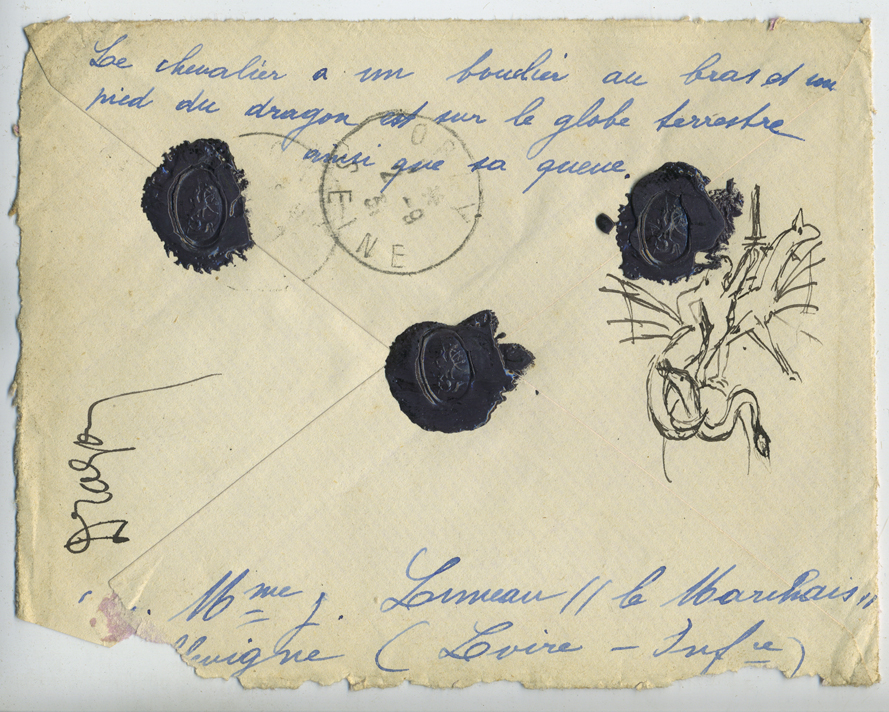 Le chevalier a un bouclier au bras et un
pied du dragon est sur le globe terrestre
ainsi que sa queue.
ORLY
SEINE
dragon
Mme J. Luneau "le Marchais"
(Loire - Infre)